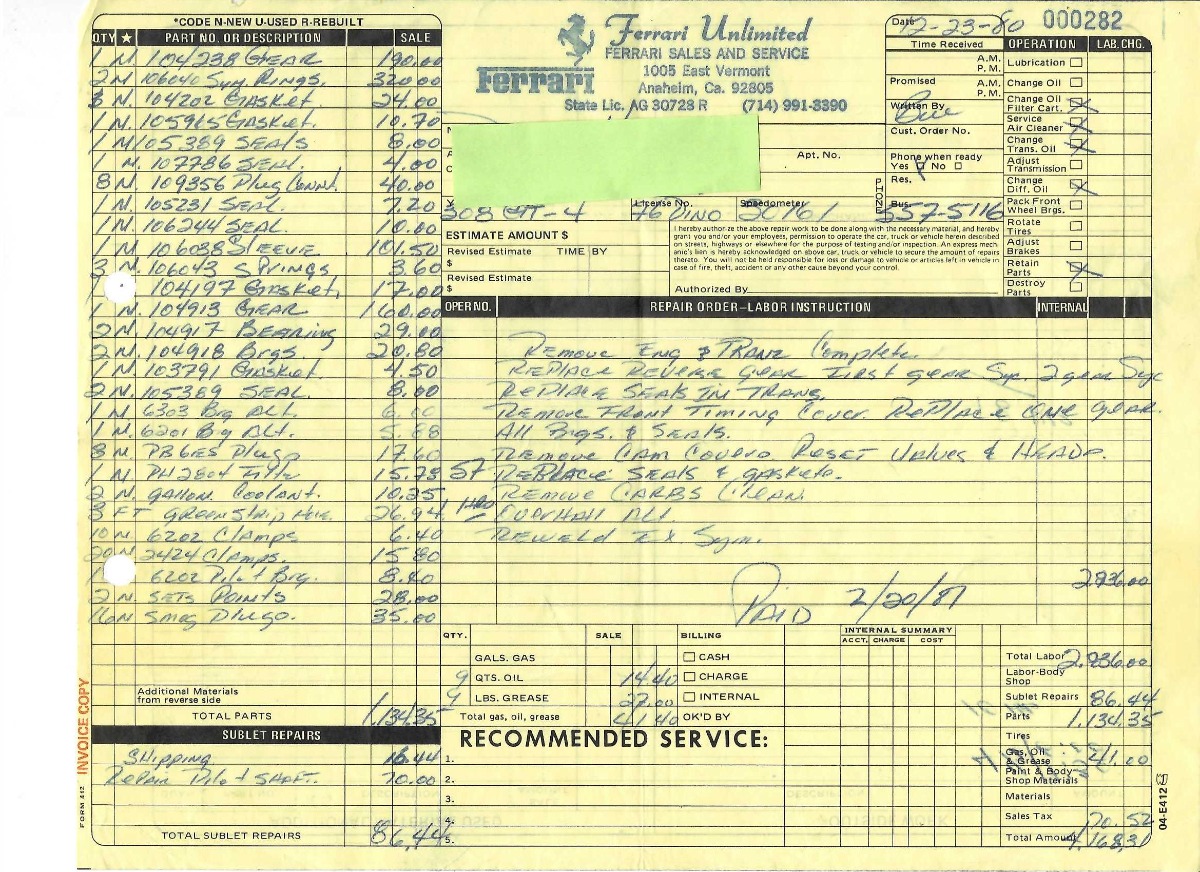 *CODE N-NEW U-USED R-REBUILT
QTY ★ PART NO. OR DESCRIPTION SALE
1 N 104238 GEAR 190.00
2 N 106040 Syn Rings 320.00
104202 Gasket 24.00
1 N. 105965 Gasket. 10.70
1 N 105389 SEALS 8.00
1 N. 107786 SEAL 4.00
8 N. 109356 Plug Connt. 40.00
1 N. 105231 SEAL. 7.20
1 N. 106244 SEAL. 10.00
1 N 106038 SLEEVE 101.50
3 N. 106043 SPRINGS 3.60
104197 Gasket, 17.00
1 N. 104913 GEAR 160.00
2 N. 104917 BEARING 29.00
2 N. 104918 Brgs. 20.80
1 N. 103791 Gasket 4.50
2 N. 105389 SEAL 8.00
1 N 6303 Brg Alt. 6.00
1 N. 6201 Brg Alt. 5.88
8 N. PB6ES Plugs 17.60
1 N PH2804 Filter 15.75
2 N. gallon. Coolant. 10.25
3 FT GREEN Strip Hose. 26.94
10 N 6202 Clamps 6.40
20 N 2424 Clamps. 15.80
6202 Pilot Brg. 8.40
2 N SETS Points 28.00
16 N Smog Plugs. 35.00
Additional Materials
from reverse side
TOTAL PARTS 1,134.35
SUBLET REPAIRS
Shipping 16.44
Repair Pilot SHAFT. 70.00
TOTAL SUBLET REPAIRS 86.44
INVOICE COPY
FORM 412
Ferrari
Ferrari Unlimited
FERRARI SALES AND SERVICE
1005 East Vermont
Anaheim, Ca. 92805
State Lic. AG 30728 R (714) 991-3390
Date 12-23-80 000282
Time Received
A.M.
P.M.
Promised A.M.
P.M.
Written By
Cust. Order No.
Apt. No.
Phone when ready
Yes No
Res.
PHONE
Bus. 557-5116
308 GT-4
License No. 76 DINO
Speedometer 30161
ESTIMATE AMOUNT $
Revised Estimate TIME BY
$
Revised Estimate
$
I hereby authorize the above repair work to be done along with the necessary material, and hereby
grant you and/or your employees, permission to operate the car, truck or vehicle herein described
on streets, highways or elsewhere for the purpose of testing and/or inspection. An express mech-
anic's lien is hereby acknowledged on above car, truck or vehicle to secure the amount of repairs
thereto. You will not be held responsible for loss or damage to vehicle or articles left in vehicle in
case of fire, theft, accident or any other cause beyond your control.
Authorized By
OPERATION LAB. CHG.
Lubrication
Change Oil
Change Oil
Filter Cart.
Service
Air Cleaner
Change
Trans. Oil
Adjust
Transmission
Change
Diff. Oil
Pack Front
Wheel Brgs.
Rotate
Tires
Adjust
Brakes
Retain
Parts
Destroy
Parts
OPER NO. REPAIR ORDER–LABOR INSTRUCTION INTERNAL
Remove Eng & Tranz Complete.
REPLACE REVERSE GEAR First gear Syn. 2 gear Syc
REPLACE SEALS IN TRANS.
Remove Front Timing Cover. RePlace ONE gear.
All Brgs. & Seals.
Remove Cam Covers. Reset Valves & HEADS.
57 RePlace SEALS & gaskets.
Remove CARBS Clean.
OVERHAll Alt.
Reweld Ex Sym.
2836.00
PAID 2/20/81
QTY. SALE BILLING
GALS. GAS CASH
9 QTS. OIL 14.40 CHARGE
9 LBS. GREASE 27.00 INTERNAL
Total gas, oil, grease 41.40 OK'D BY
INTERNAL SUMMARY
ACCT. CHARGE COST
RECOMMENDED SERVICE:
1.
2.
3.
4.
5.
Total Labor 2,836.00
Labor-Body
Shop
Sublet Repairs 86.44
Parts 1,134.35
Tires
Gas, Oil
& Grease 41.00
Paint & Body
Shop Materials
Materials
Sales Tax 70.52
Total Amount 4,168.31
04-E412